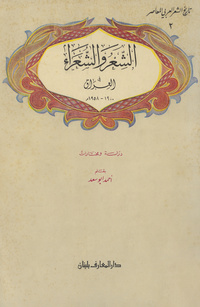 تاريخ الشعر العربي المعاصر
٢
الشعر والشعراء
في
العراق
١٩٠٠ - ١٩٥٨م
دراسة ومختارات
بقلم
أحمد أبو سعد
دار المعارف بلبنان